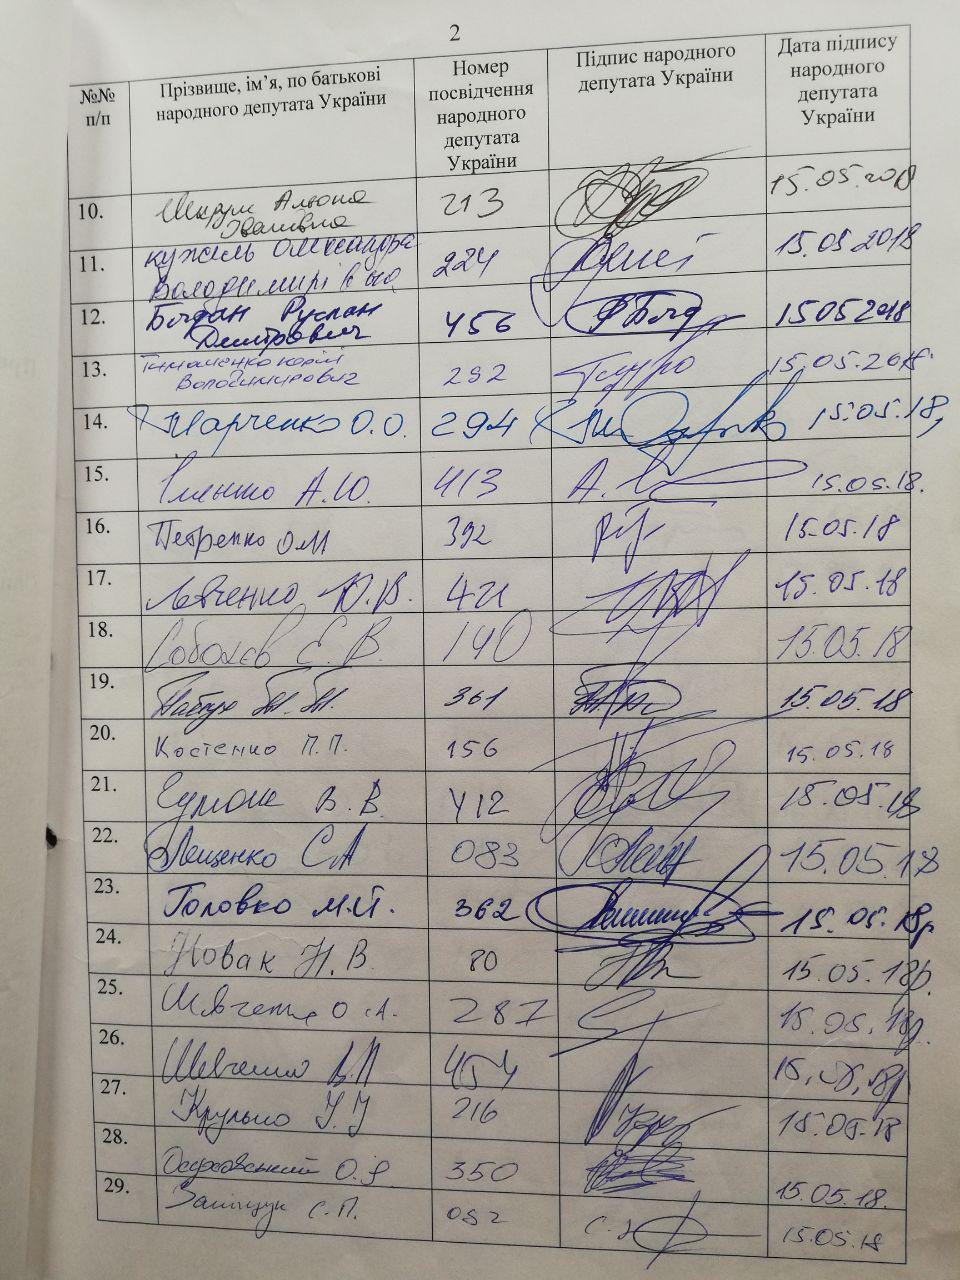 2
№№
п/п
Прізвище, ім’я, по батькові
народного депутата України
Номер
посвідчення
народного
депутата
України
Підпис народного
депутата України
Дата підпису
народного
депутата
України
10. Шкрум Альона 213 15.05.2018
Іванівна
11. Кужель Олександра 224 15.05 2018
Володимирівна
12. Богдан Руслан 456 15 05 2018
Дмитрович
13. Тимошенко Юрій 292 15.05.2018
Володимирович
14. Марченко О.О. 294 15.05.18
15. Ільєнко А.Ю. 413 15.05.18.
16. Петренко О М 392 15.05.18
17. Левченко Ю.В. 421 15.05.18
18. Соболєв Є. В. 140 15.05.18
19. 361 15.05.18
20. Костенко П. П. 156 15.05.18
21. В. В. 412 15.05.18
22. Лещенко С А 083 15.05.18
23. Головко М.Й. 362 15.05.18р
24. Новак Н. В. 80 15.05.18р.
25. Шевченко О .А. 287 15.05.18р.
26. Шевченко В.Л 454
27. Крулько І. І 216 15.05.18
28. Осуховський О.І. 350 15.05.18.
29. Заліщук С. П. 052 15.05.18